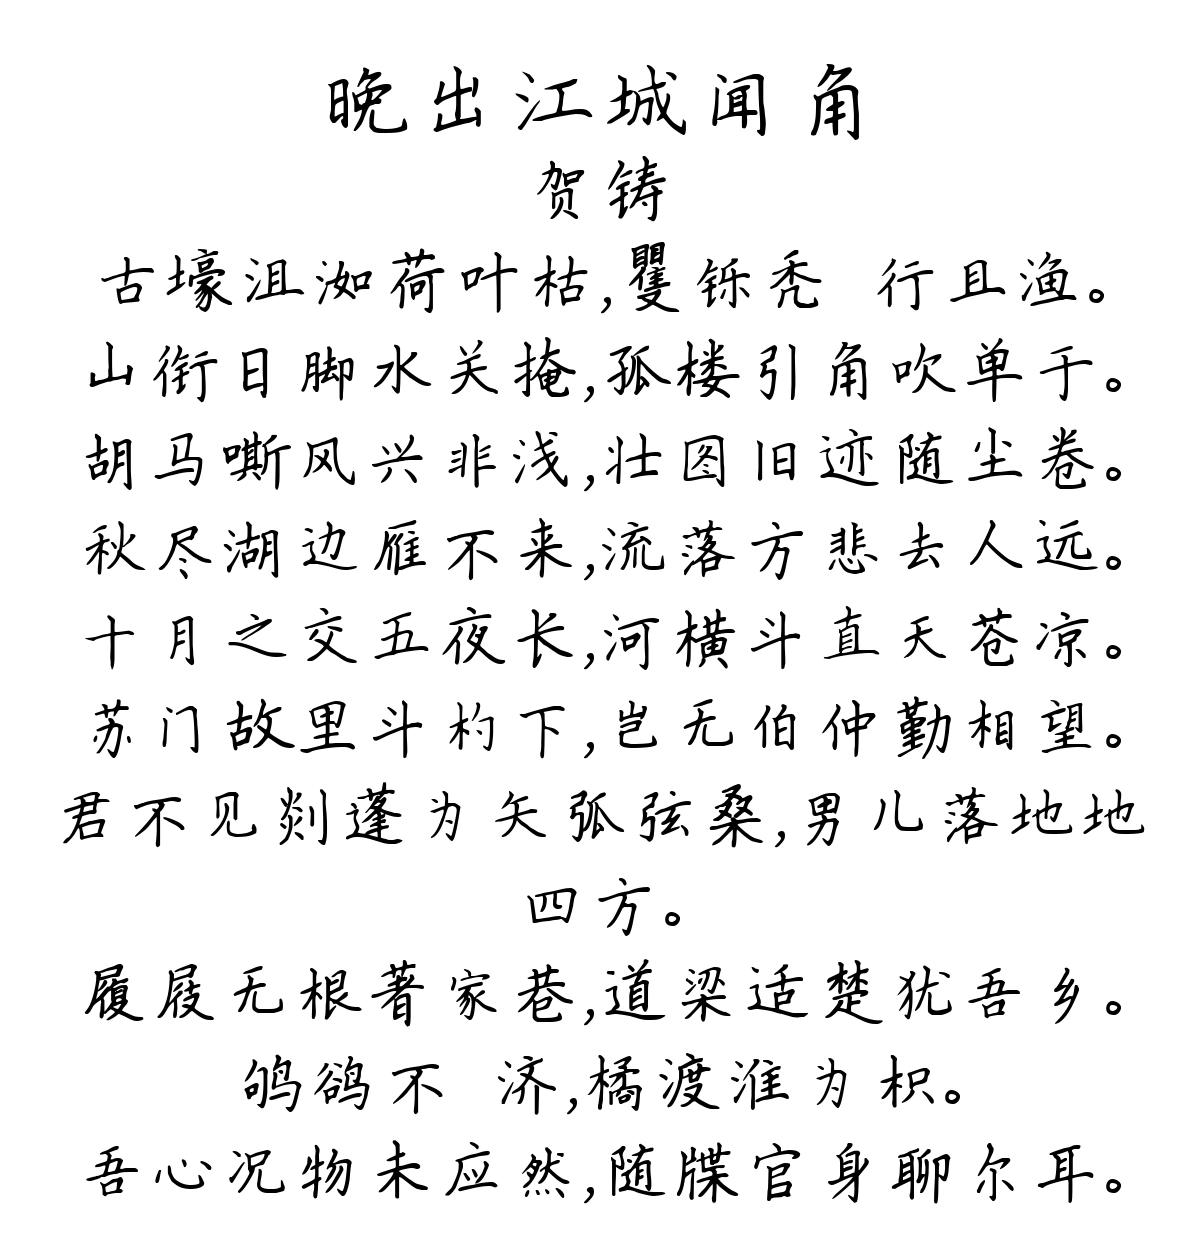 晚出江城闻角
贺铸
古壕沮洳荷叶枯,矍铄秃 行且渔。
山衔日脚水关掩,孤楼引角吹单于。
胡马嘶风兴非浅,壮图旧迹随尘卷。
秋尽湖边雁不来,流落方悲去人远。
十月之交五夜长,河横斗直天苍凉。
苏门故里斗杓下,岂无伯仲勤相望。
君不见剡蓬为矢弧弦桑,男儿落地地
四方。
履屐无根著家巷,道梁适楚犹吾乡。
鸲鹆不 济,橘渡淮为枳。
吾心况物未应然,随牒官身聊尔耳。